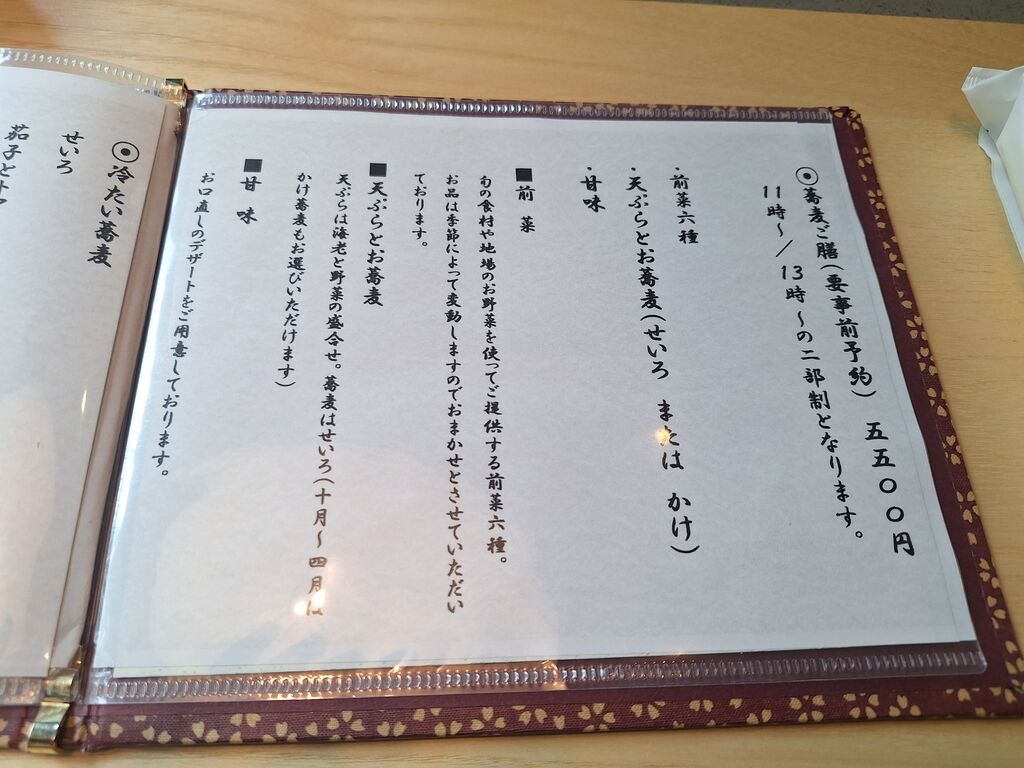 ◉蕎麦ご膳(要事前予約) 五五〇〇円
11時～/13時～の二部制となります。
・前菜六種
・天ぷらとお蕎麦(せいろ または かけ)
・甘味
■前菜
旬の食材や地場のお野菜を使ってご提供する前菜六種。
お品は季節によって変動しますのでおまかせとさせていただい
ております。
■天ぷらとお蕎麦
天ぷらは海老と野菜の盛合せ。蕎麦はせいろ(十月～四月は
かけ蕎麦もお選びいただけます)
■甘味
お口直しのデザートをご用意しております。
◉冷たい蕎麦
せいろ
茄子と